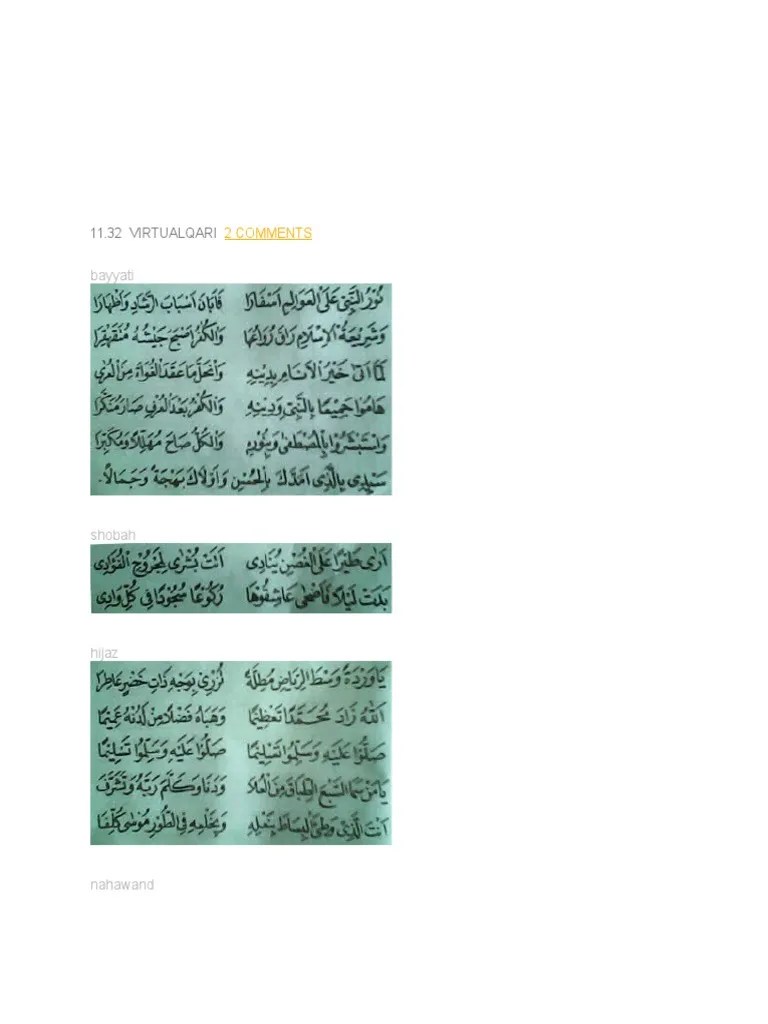 11.32 VIRTUALQARI 2 COMMENTS
bayyati
نُوْرُ النَّبِيِّ عَلَى الْعَوَالِمِ اَسْفَارَا فَاَبَانَ اَسْبَابَ الرَّشَادِ وَاَظْهَارَا
وَشَرِيْعَةُ الْاِسْلَامِ رَاقَ رُوَاؤُهَا وَالْكُفْرُ اَصْبَحَ جَيْشُهُ مُتَقَهْقِرَا
لَمَّا اَتَى خَيْرَ الْاَنَامِ بِدِيْنِهِ وَانْحَلَّ مَا عَقَدَ الْغُوَاةُ مِنَ الْعُرَى
هَامُوْا جَمِيْعًا بِالنَّبِيِّ وَدِيْنِهِ وَالْكُفْرُ بَعْدَ الْعُرْفِ صَارَ مُنَكَّرَا
وَاسْتَبْشَرُوْا بِالْمُصْطَفَى وَبِنُوْرِهِ وَالْكُلُّ صَاحَ مُهَلِّلًا وَمُكَبِّرَا
سَيِّدِى بِالَّذِى اَمَدَّكَ بِالْحُسْنِ وَاَوْلَاكَ بَهْجَةً وَجَمَالًا.
shobah
اَرٰى طَيْرًا عَلَى الْغُصْنِ يُنَادِى اَتَتْ بُشْرٰى لِمَجْرُوْحِ الْفُؤَادِى
بَدَتْ لَيْلًا فَاَضْحٰى عَاشِقُوْهَا رُكُوْعًا سُجُوْدًا فِى كُلِّ وَادِى
hijaz
يَا وَرْدَةً وَسَطَ الرِّيَاضِ مُطِلَّةً تُزْرِى بِوَجْهِ ذَاتِ عَاطِرَا
اَللهُ زَادَ مُحَمَّدًا تَعْظِيْمًا وَحَبَاهُ فَضْلًا مِنْ لَدُنْهُ عَمِيْمًا
صَلُّوْا عَلَيْهِ وَسَلِّمُوْا تَسْلِيْمًا صَلُّوْا عَلَيْهِ وَسَلِّمُوْا تَسْلِيْمًا
يَا مَنْ سَمَا السَّبْعَ الطِّبَاقَ مِنَ الْعُلَا وَدَنَا وَكَلَّمَ رَبَّهُ وَتَشَرَّفَ
اَنْتَ الَّذِى وَطِئَ الْبِسَاطَ بِنَعْلِهِ وَبِخَلْعِهِ فِى الطُّوْرِ مُوْسٰى كُلِّفَا
nahawand